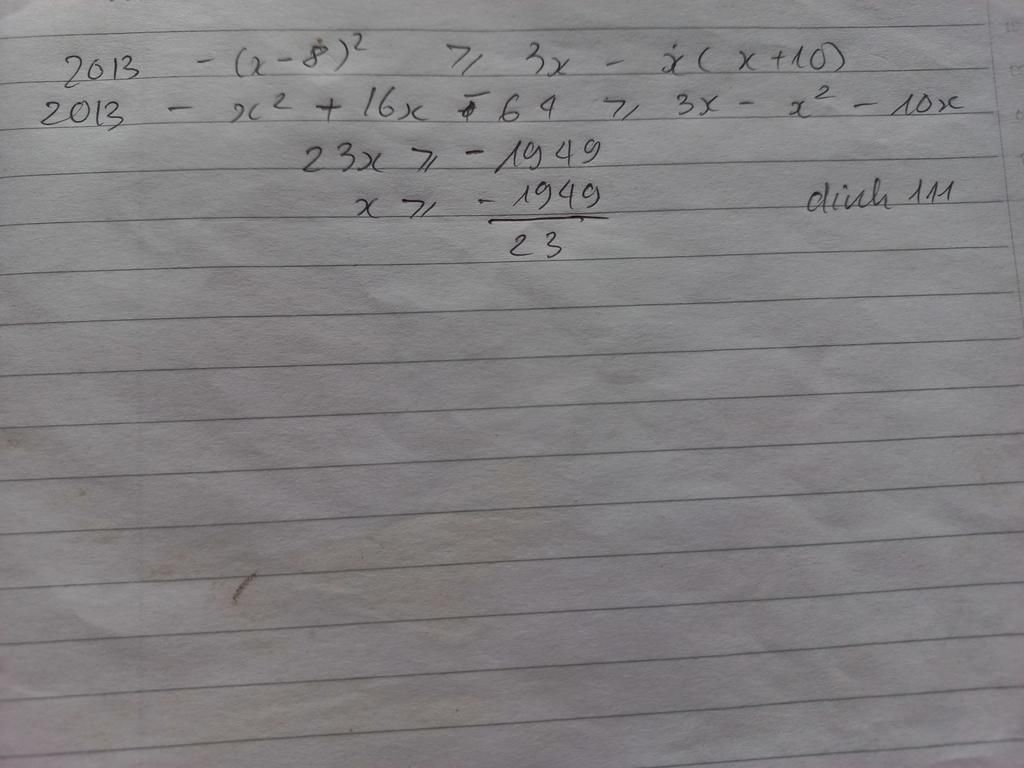 2013 - (x-8)² ⩾ 3x - x(x+10)
2013 - x² + 16x - 64 ⩾ 3x - x² - 10x
23x ⩾ -1949
x ⩾ -1949/23
dinh 111